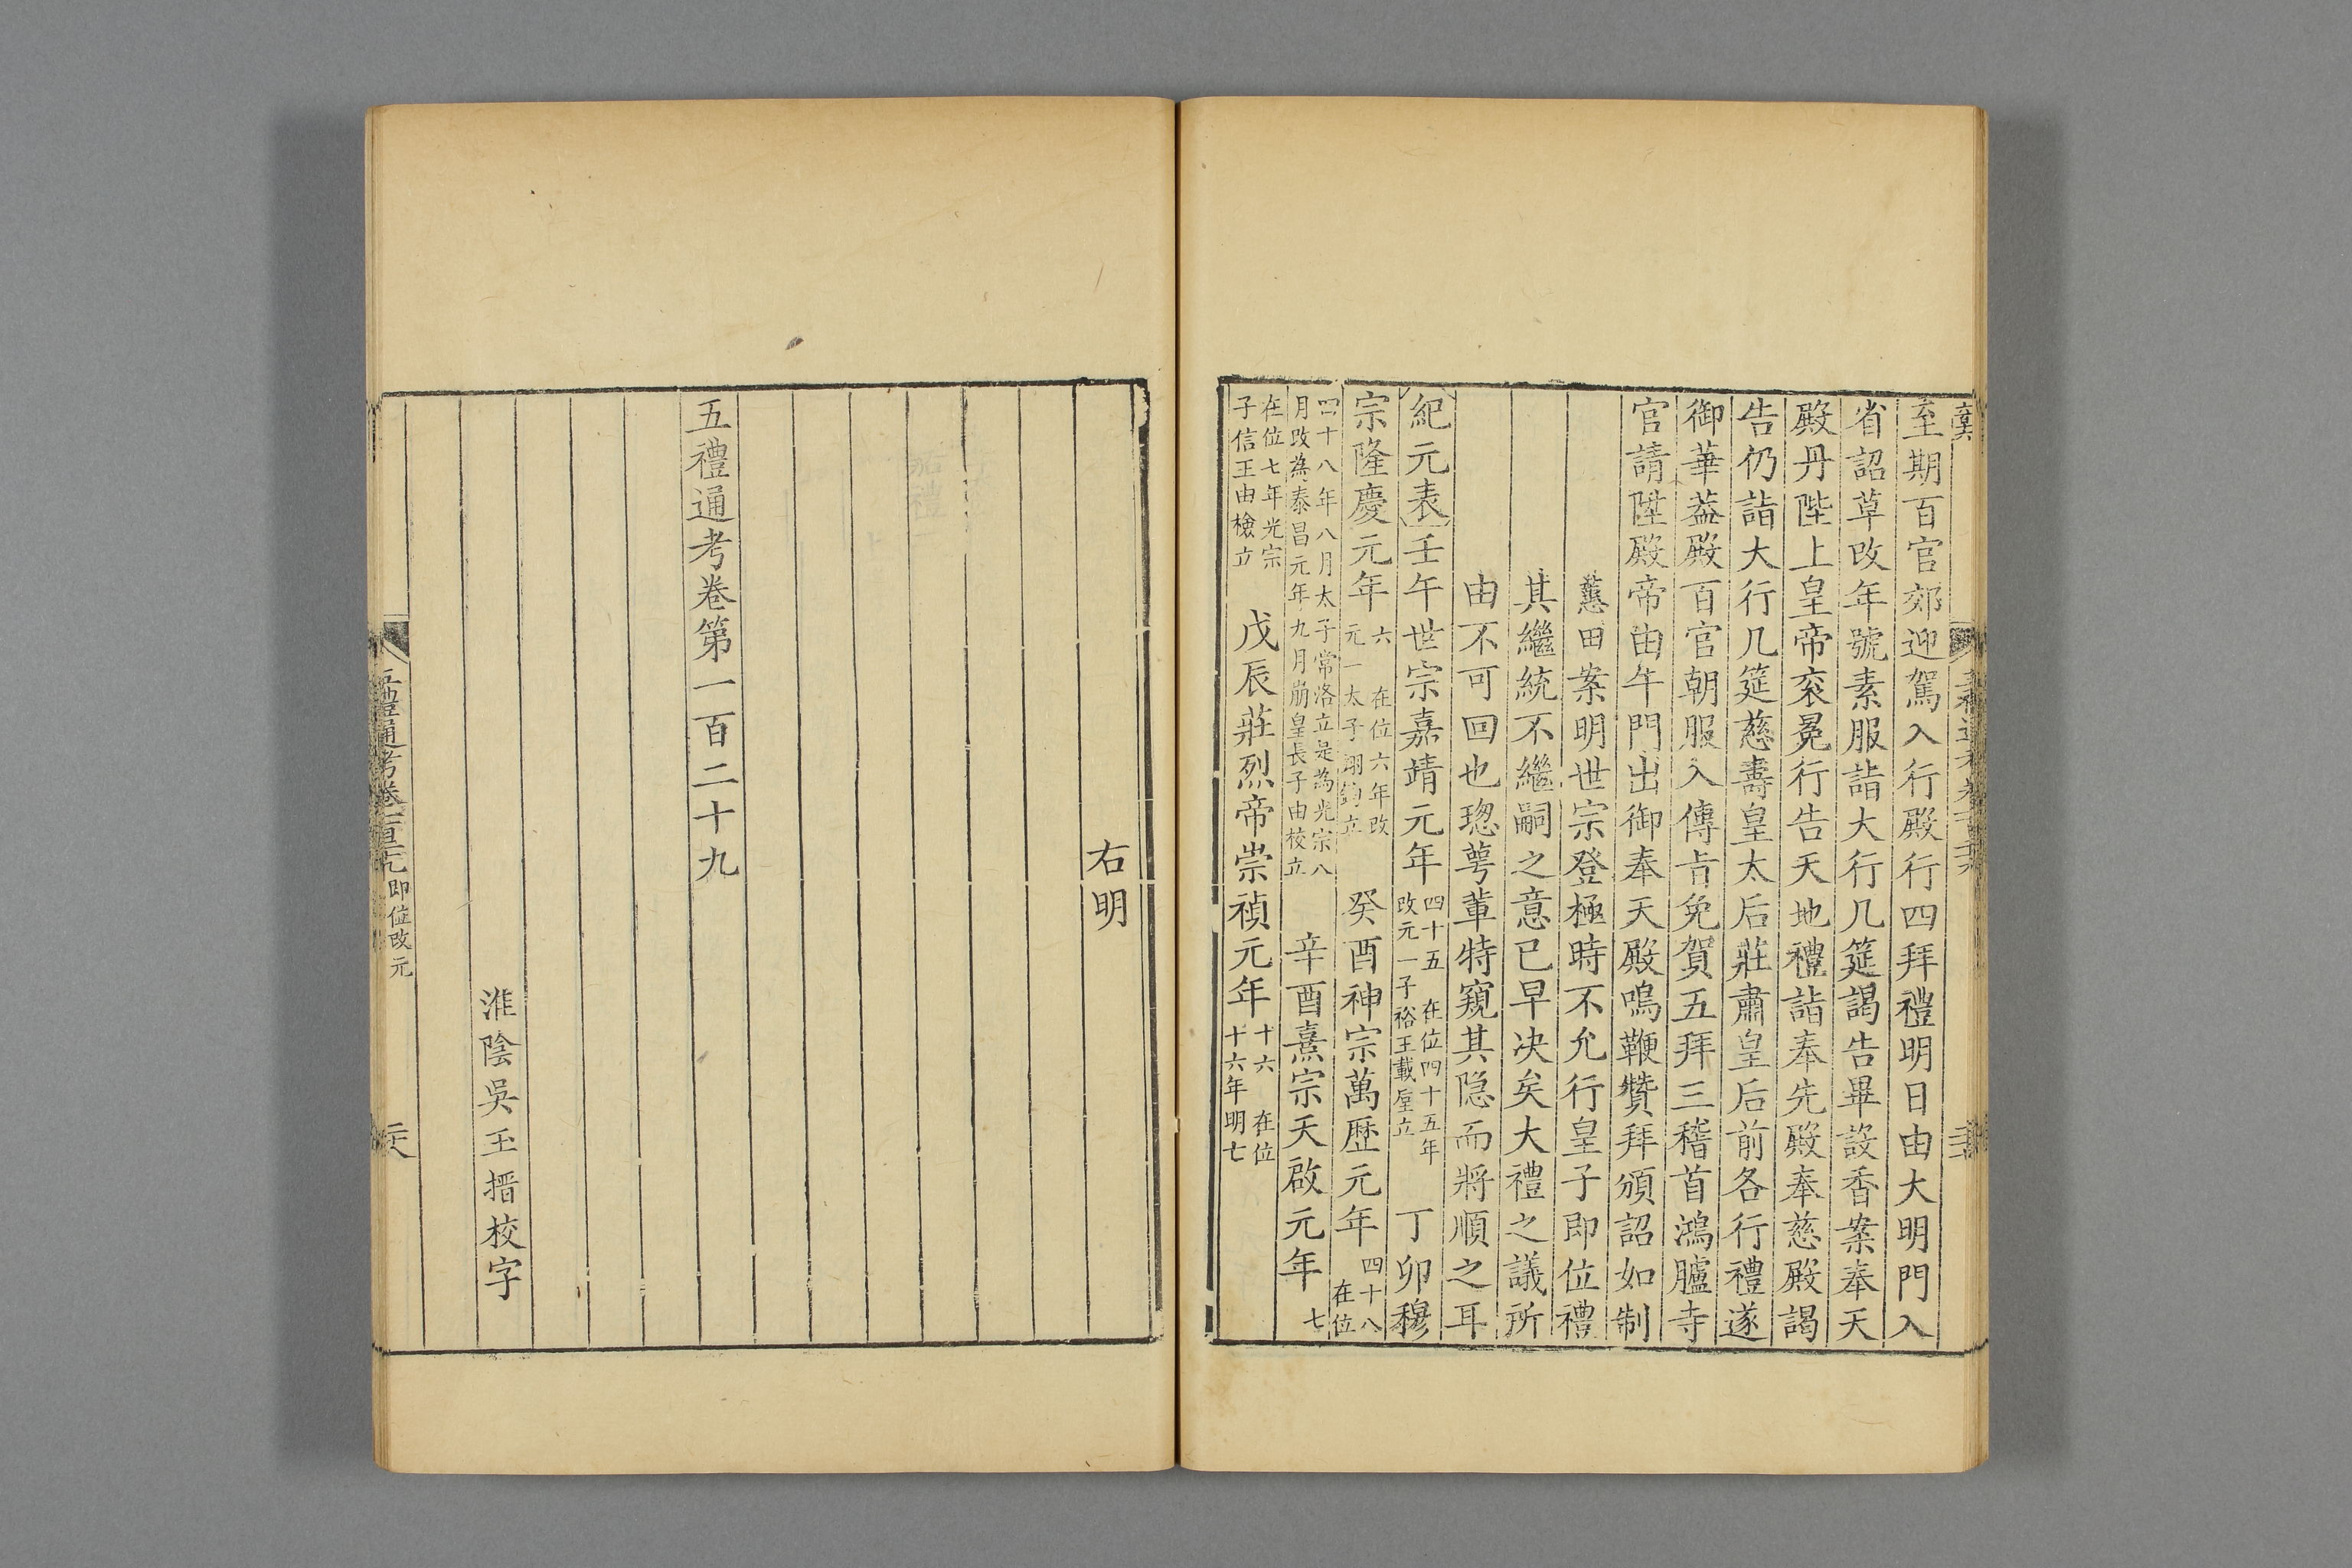 至期百官郊迎駕入行殿行四拜禮明日由大明門入
省詔草改年號素服詣大行几筵謁告畢設香案奉天
殿丹陛上皇帝衮冕行告天地禮詣奉先殿奉慈殿謁
告仍詣大行几筵慈壽皇太后莊肅皇后前各行禮遂
御華蓋殿百官朝服入傳㫖免賀五拜三稽首鴻臚寺
官請陞殿帝由午門出御奉天殿鳴鞭贊拜頒詔如制
蕙田案明世宗登極時不允行皇子即位禮
其繼統不繼嗣之意已早决矣大禮之議所
由不可回也璁萼輩特窺其隐而將順之耳
紀元表壬午世宗嘉靖元年四十五 在位四十五年改元一子裕王載垕立 丁卯穆
宗隆慶元年六 在位六年改元一太子翊鈞立 癸酉神宗萬歷元年四十八 在位
四十八年八月太子常洛立是為光宗八月改為泰昌元年九月崩皇長子由校立 辛酉熹宗天啟元年七
在位七年光宗子信王由檢立 戊辰莊烈帝崇禎元年十六 在位十六年明亡
右明
五禮通考卷第一百二十九
淮陰吳玉搢校字
五禮通考卷一百二十九 即位改元